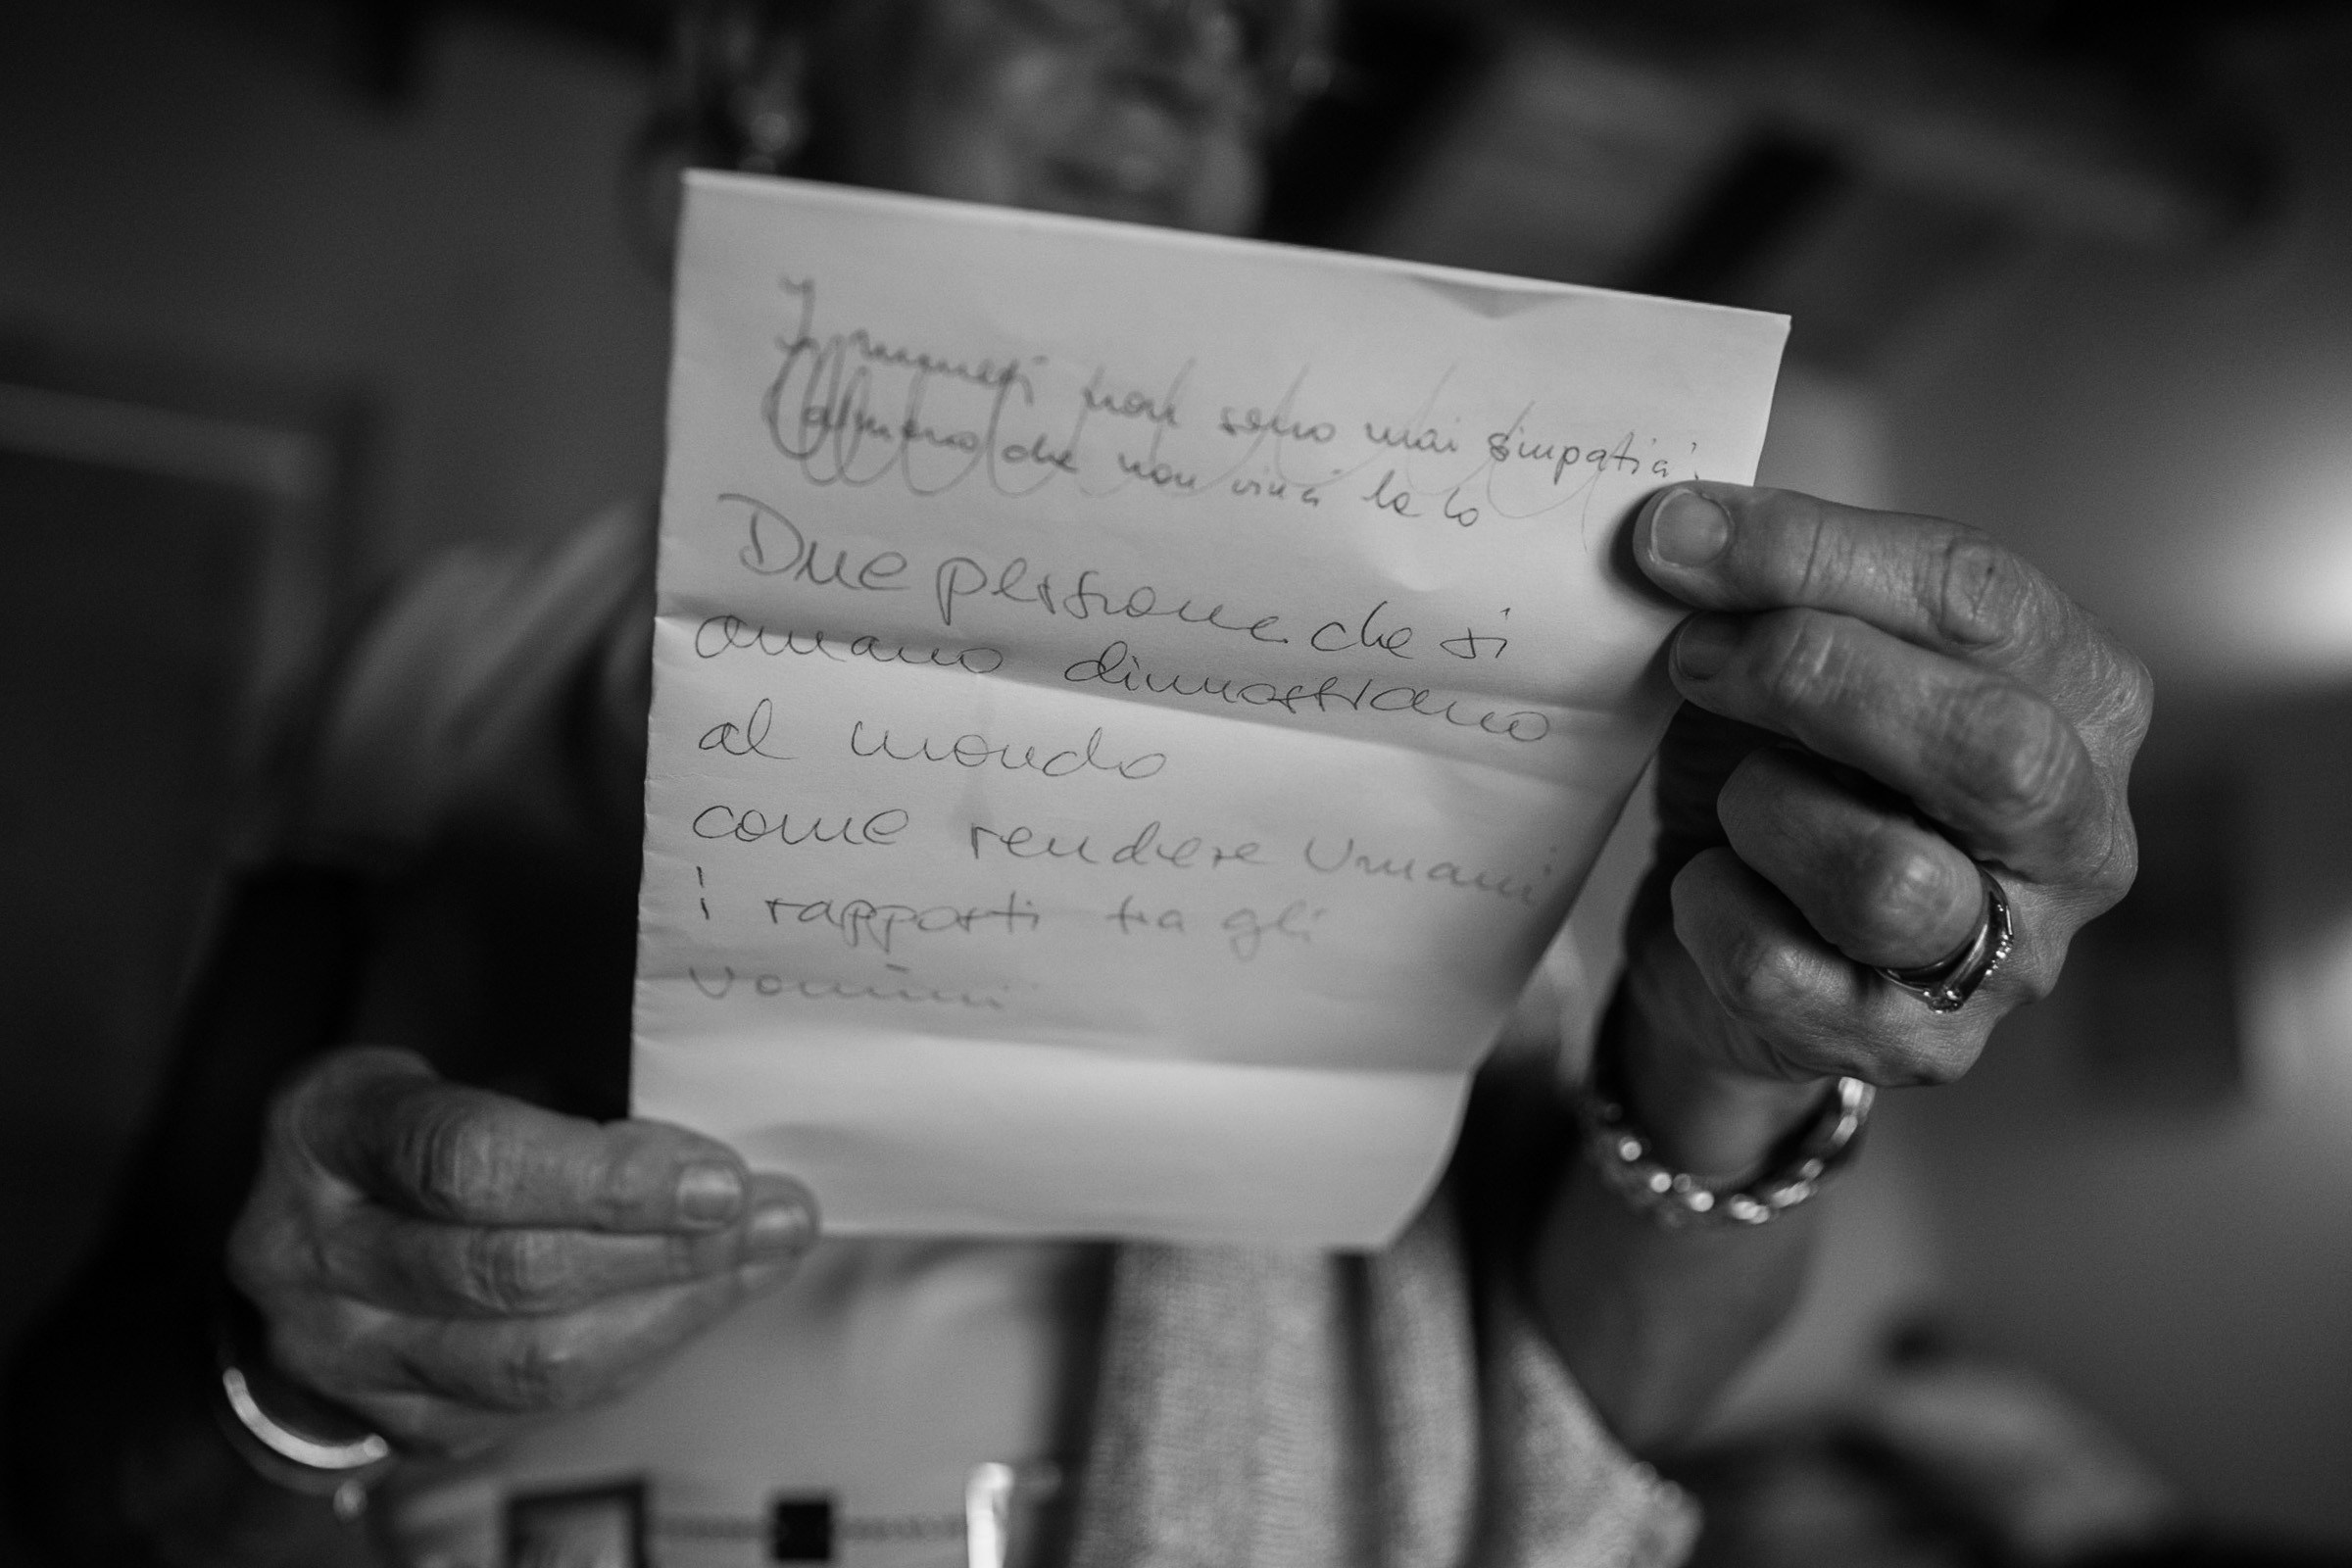 Innamorati non sono mai simpatici
almeno che non vivi la lo
Due persone che si
amano dimostrano
al mondo
come rendere Umani
i rapporti tra gli
uomini